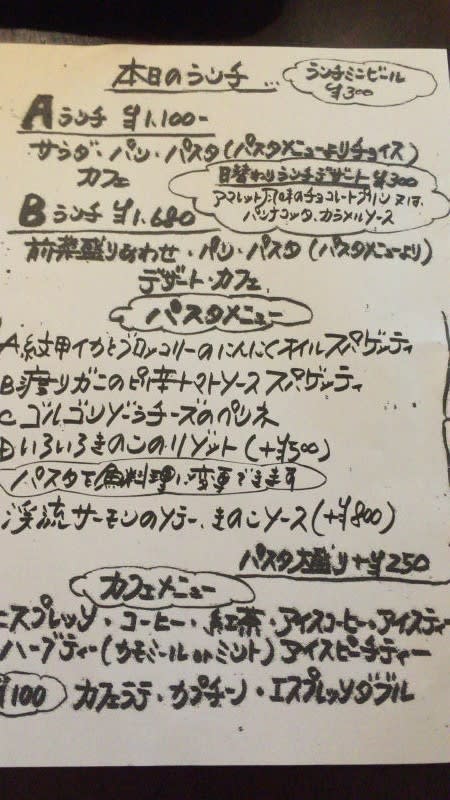 本日のランチ
ランチミニビール
¥300
Aランチ ¥1.100-
サラダ・パン・パスタ(パスタメニューよりチョイス)
カフェ
日替わりランチデザート ¥300
アマレット風味のチョコレートプリン 又は、
パンナコッタ、カラメルソース
Bランチ ¥1.680
前菜盛りあわせ・パン・パスタ(パスタメニューより)
デザート・カフェ
パスタメニュー
A紋甲イカとブロッコリーのにんにくオイルスパゲッティ
B渡りガニのピリ辛トマトソース スパゲッティ
Cゴルゴンゾーラチーズのペンネ
Dいろいろきのこのリゾット(+¥300)
パスタを魚料理に変更できます
渓流サーモンのソテー、きのこソース(+¥800)
パスタ大盛り+¥250
カフェメニュー
エスプレッソ・コーヒー・紅茶・アイスコーヒー・アイスティー
ハーブティー(カモミール or ミント)アイスピーチティー
¥100 カフェラテ・カプチーノ・エスプレッソダブル